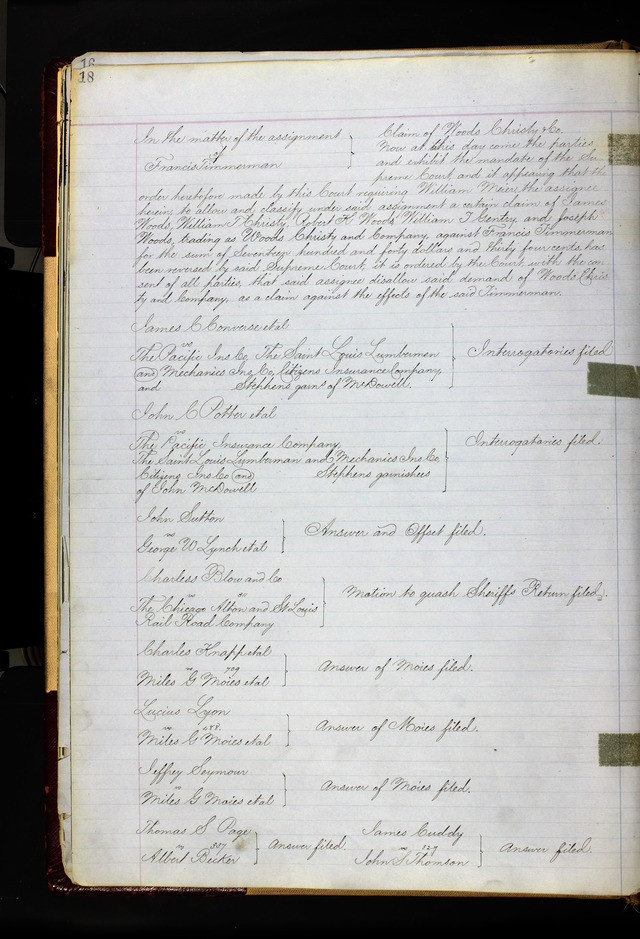 16
18
In the matter of the assignment
of
Francis Timmerman
Claim of Woods Christy & Co.
Now at this day come the parties,
and exhibit the mandate of the Su-
preme Court, and it appearing that the
order heretofore made by this Court requiring William Meier the assignee
herein, to allow and classify under said assignment a certain claim of James
Woods, William T Christy, Robert K Woods William T. Gentry, and Joseph
Woods, trading as Woods Christy and Company, against Francis Timmerman
for the sum of Seventeen hundred and forty dollars and thirty four cents, has
been reversed by said Supreme Court, it is ordered by the Court, with the con-
sent of all parties, that said assignee disallow said demand of Woods Chris
ty and Company, as a claim against the effects of the said Timmerman.
James C Converse etal
vs
The Pacific Ins Co, The Saint Louis Lumbermen
and Mechanics Ins Co, Citizens Insurance Company,
and Stephens garns of McDowell.
Interrogatories filed
John C Potter etal
vs
The Pacific Insurance Company,
The Saint Louis Lumberman and Mechanics Ins Co,
Citizens Ins Co and Stephens garnishees
of John McDowell
Interrogatories filed.
John Sutton
vs
George W Lynch etal
Answer and Offset filed.
Charless Blow and Co
vs
The Chicago Alton and St Louis
Rail Road Company
Motion to quash Sheriffs Return filed.
Charles Knapp etal
vs 709
Miles G Moies etal
Answer of Moies filed.
Lucius Lyon
vs
Miles G Moies etal
Answer of Moies filed.
Jeffrey Seymour
vs
Miles G Moies etal
Answer of Moies filed.
Thomas S Page
vs 507
Albert Becker
Answer filed.
James Cuddy
vs 729
John S Thomson
Answer filed.